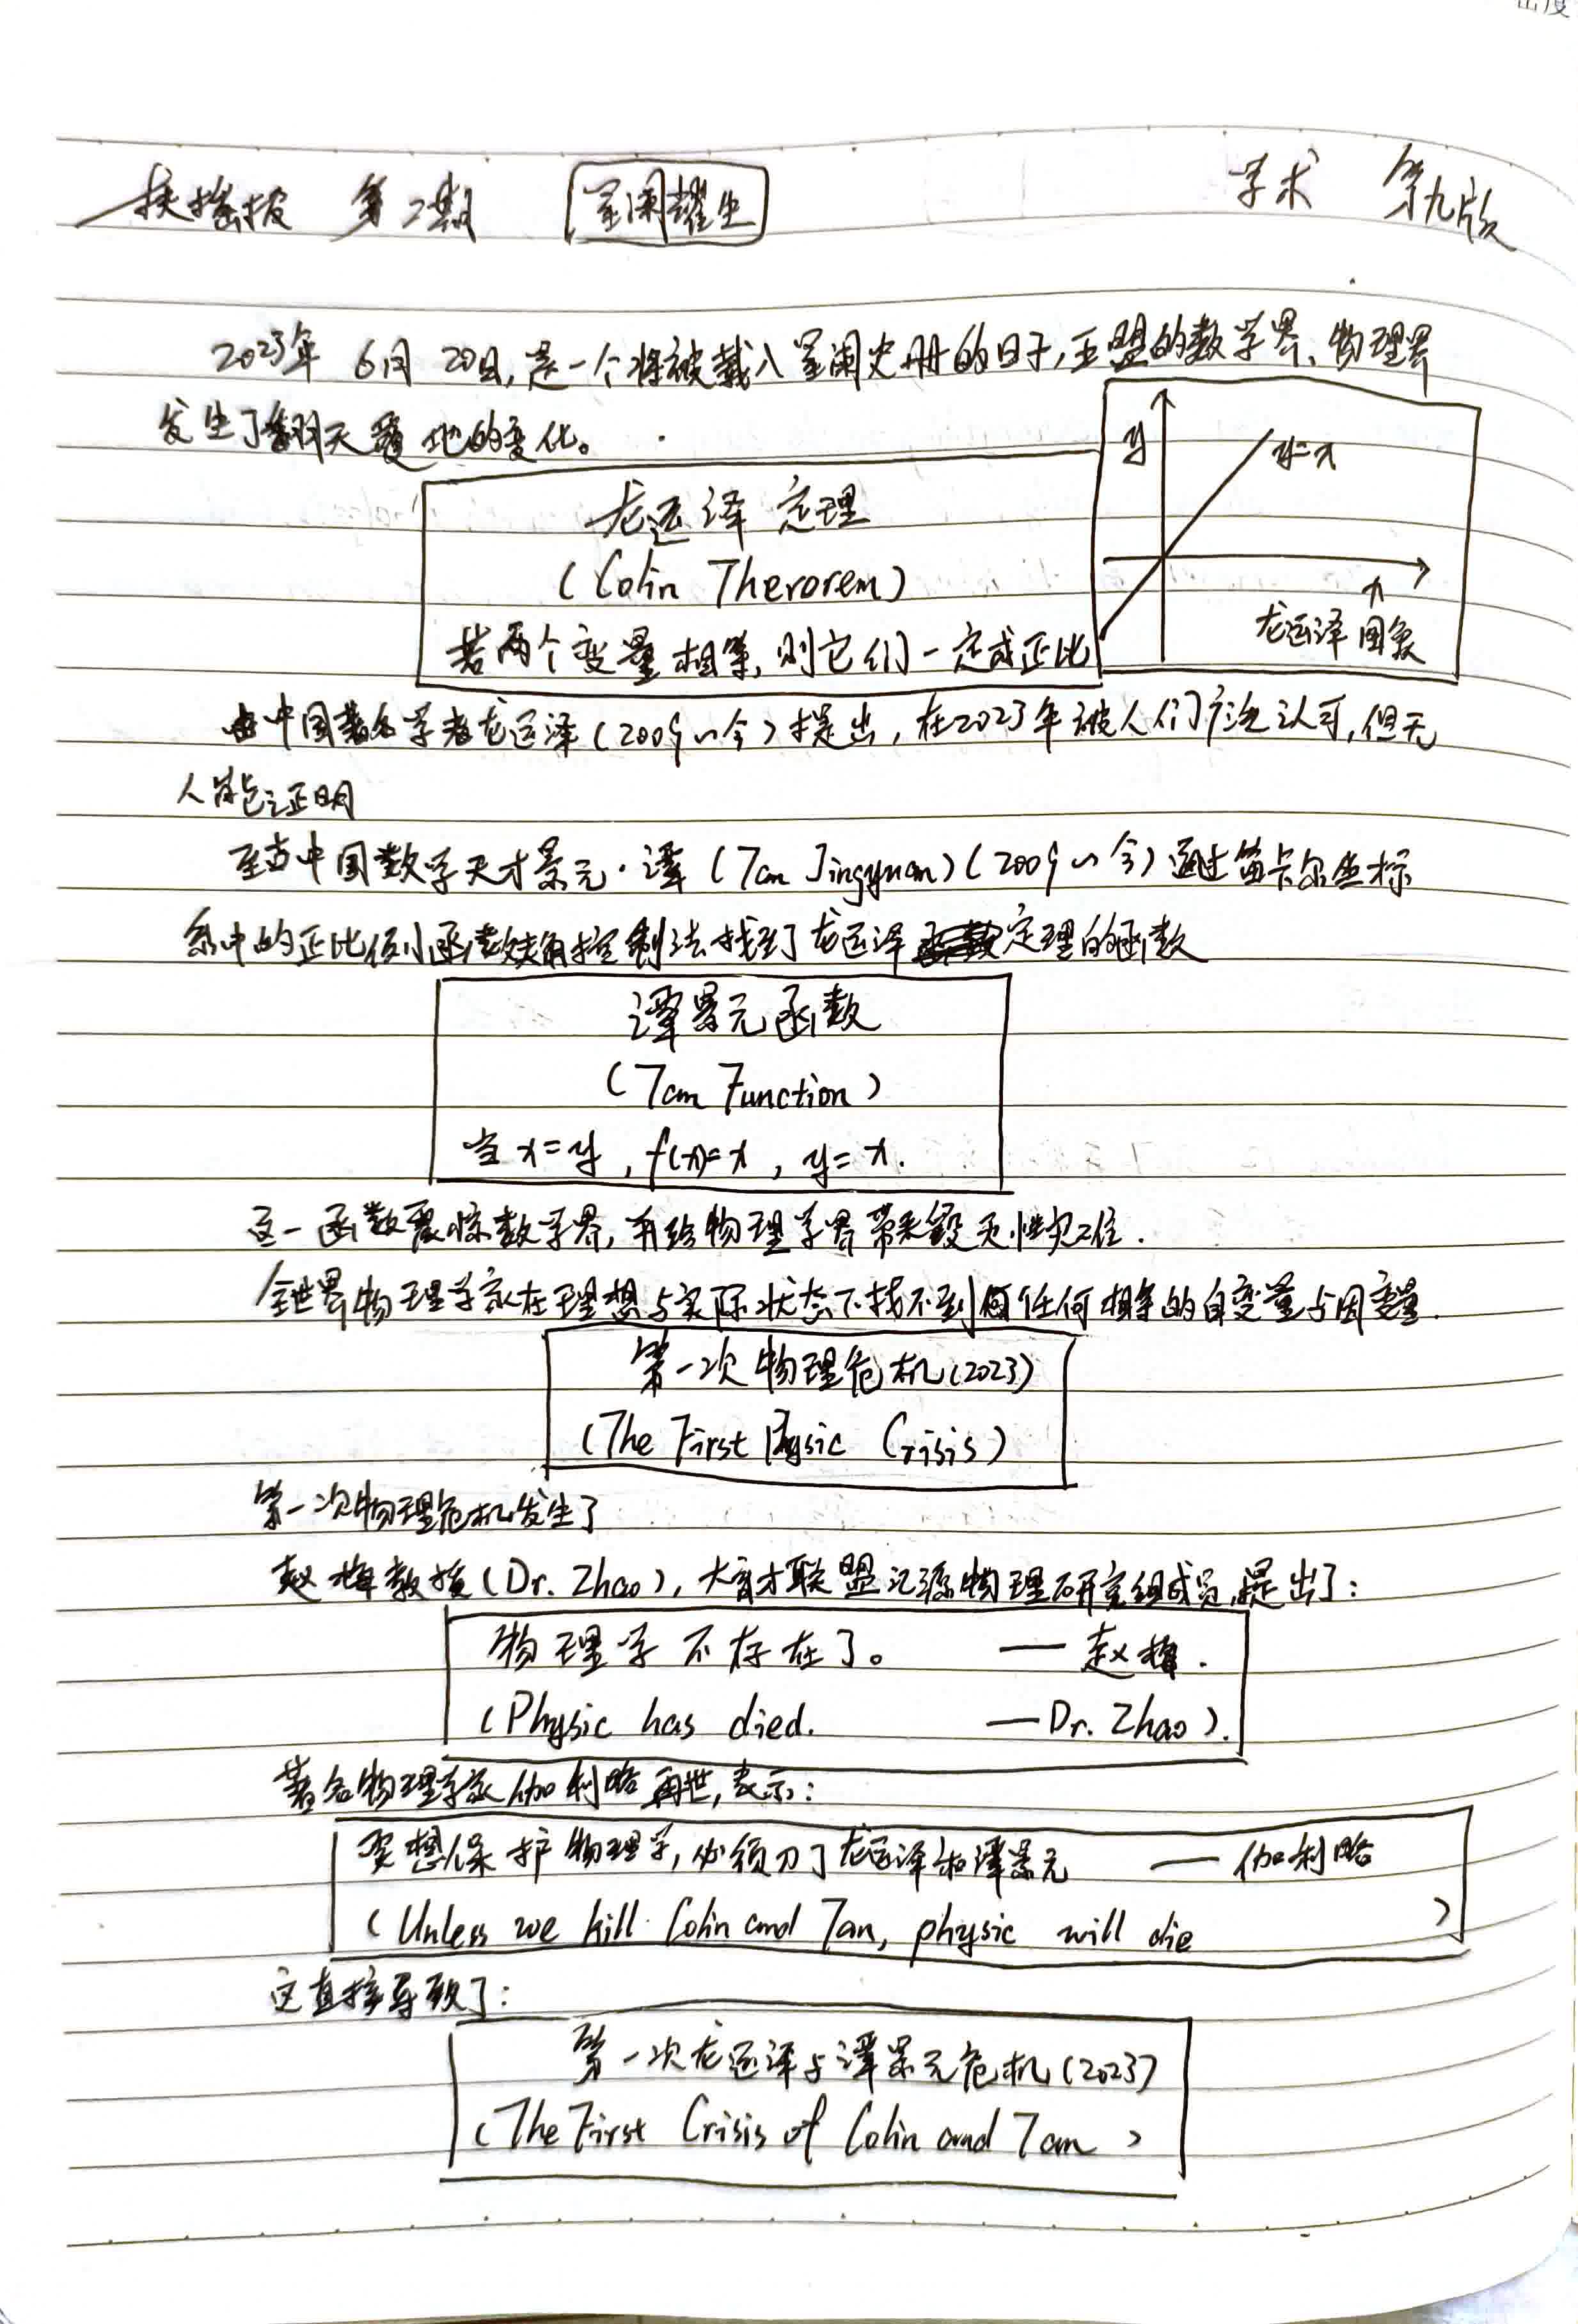 扶摇报 第2期 星阑耀生 学术 第九版
2023年 6月 20日,是一个将被载入星阑史册的日子,王盟的数学界、物理界
发生了翻天覆地的变化。
y
y=x
x
龙运泽图象
龙运泽定理
(Colin Therorem)
若两个变量相等,则它们一定成正比
由中国著名学者龙运泽(2009~今)提出,在2023年被人们广泛认可,但无
人能证明
至古中国数学天才景元·谭(Tan Jingyuan)(2009~今)通过笛卡尔坐标
系中的正比例函数夹角控制法找到了龙运泽定理的函数
谭景元函数
(Tan Function)
当x=y,f(x)=x,y=x.
这一函数震惊数学界,并给物理学界带来毁灭性灾难.
全世界物理学家在理想与实际状态下找不到任何相等的自变量与因变量.
第一次物理危机(2023)
(The First Physic Crisis)
第一次物理危机发生了
赵梅教授(Dr. Zhao),大育才联盟汇源物理研究组成员,提出了:
物理学不存在了。 ——赵梅.
(Physic has died. ——Dr. Zhao).
著名物理学家伽利略再世,表示:
要想保护物理学,必须刀了龙运泽和谭景元 ——伽利略
(Unless we kill Colin and Tan, physic will die )
这直接导致了:
第一次龙运泽与谭景元危机(2023)
(The First Crisis of Colin and Tan)